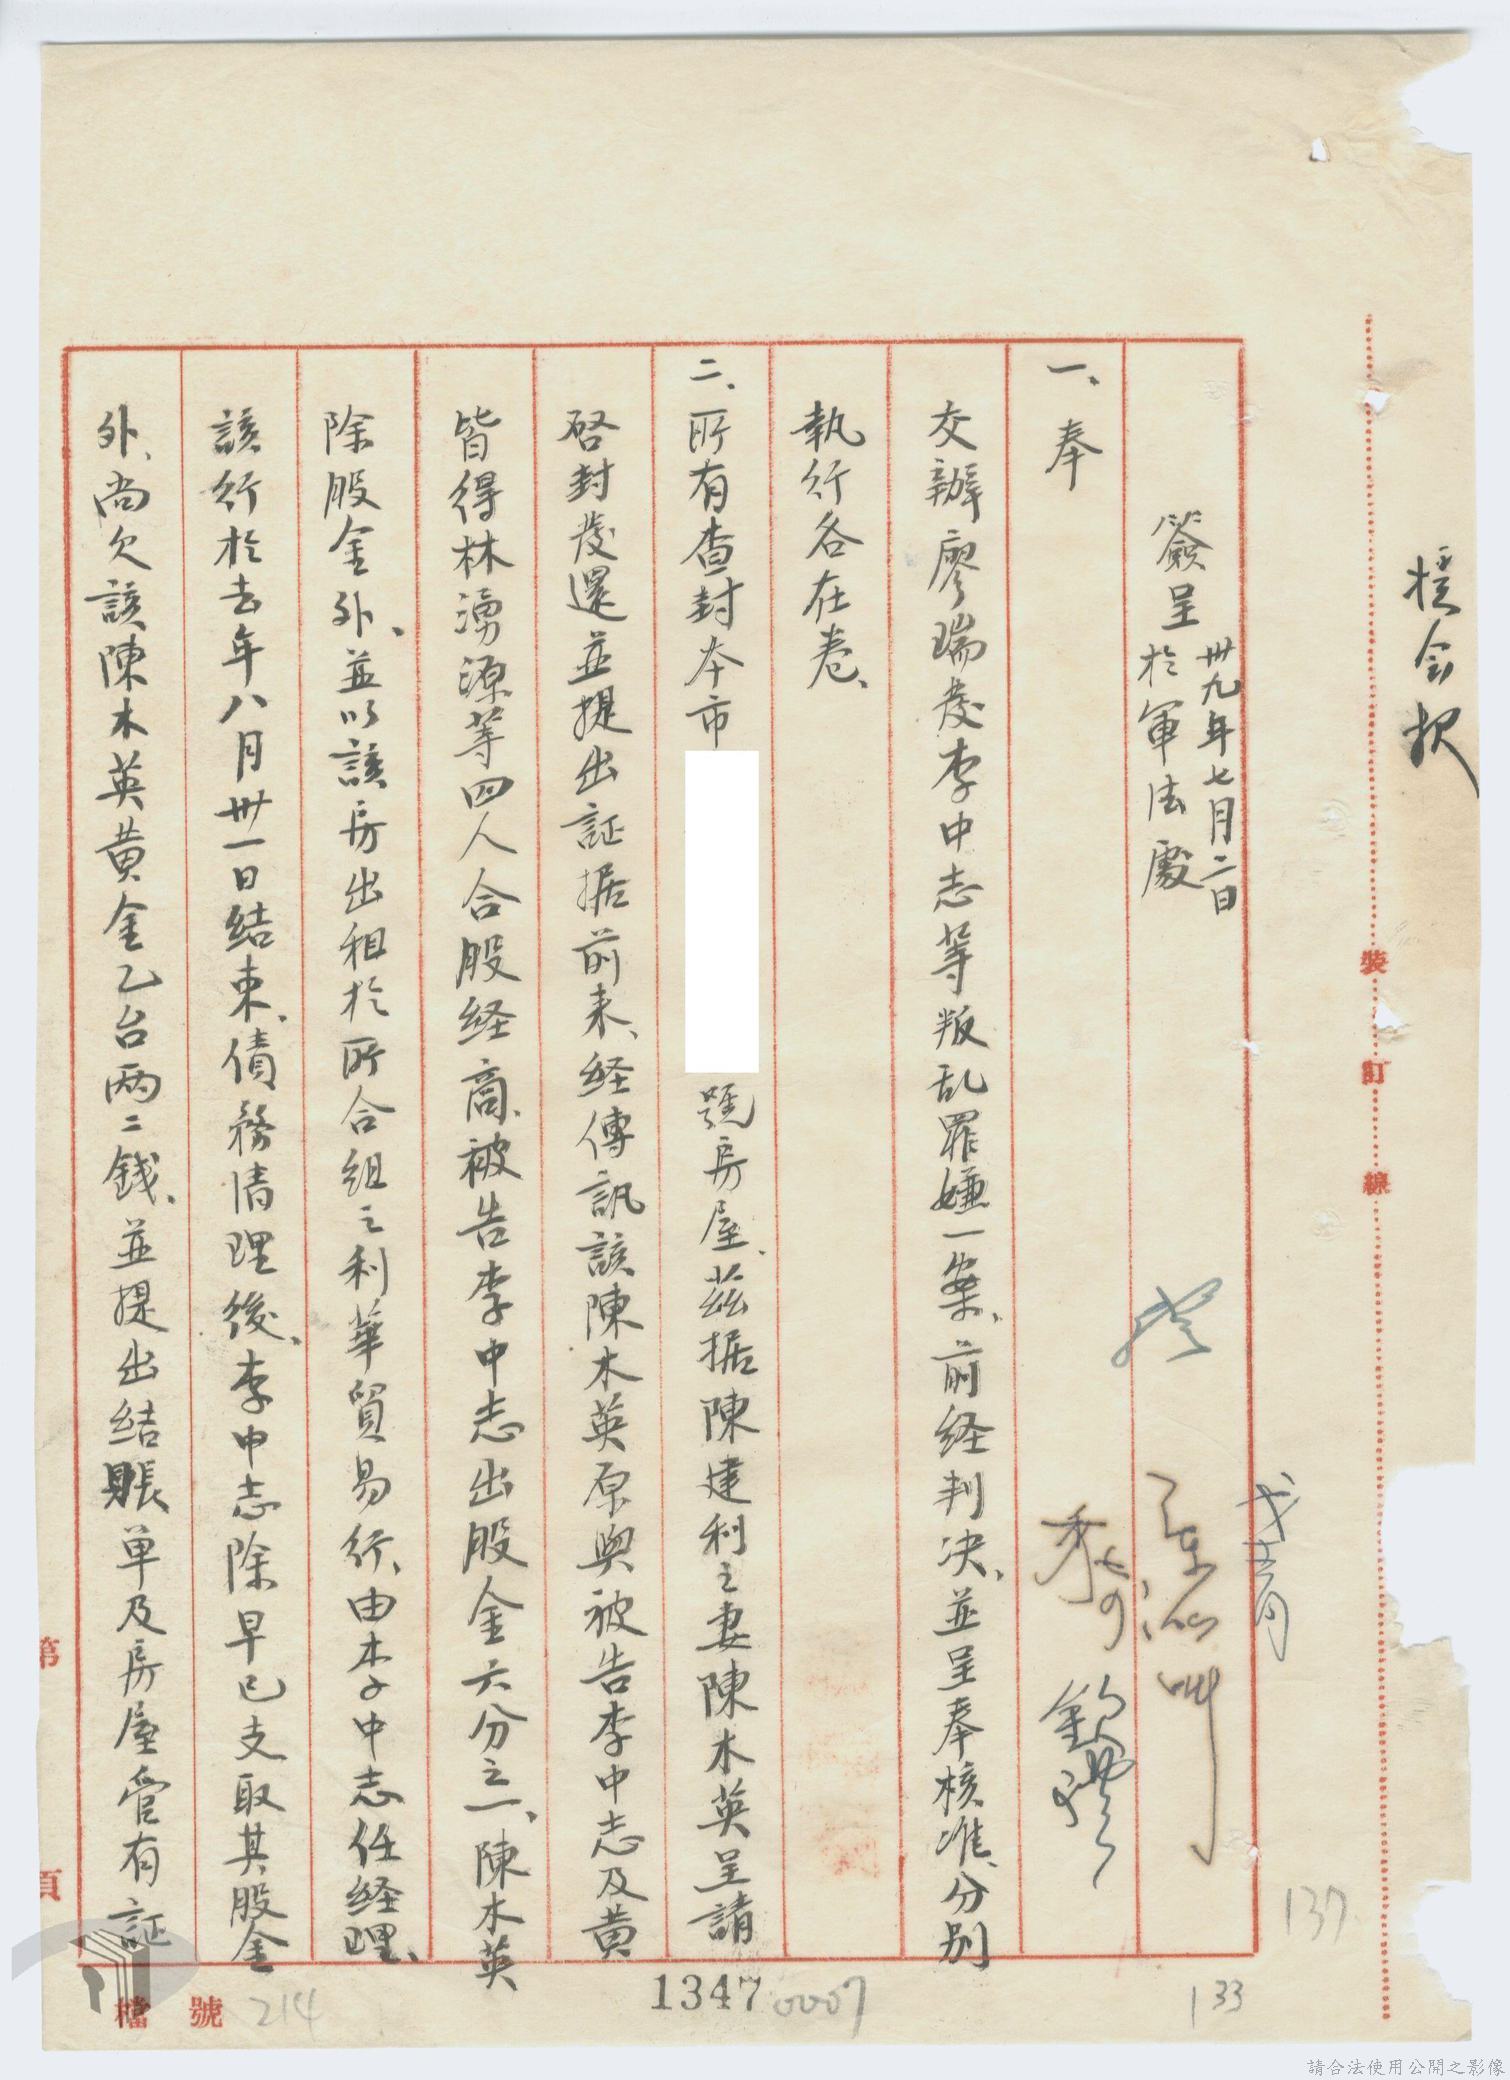 簽呈
卅九年七月二日
於軍法處
一、奉
交辦廖瑞發李中志等叛乱罪嫌一案、前経判决、並呈奉核准、分别
執行各在卷、
二、所有查封本市
號房屋、茲据陳建利之妻陳木英呈請
啓封發還並提出証据前来、経傳訊該陳木英原與被告李中志及黄
皆得林湧源等四人合股経商、被告李中志出股金六分之一、陳木英
除股金外、並以該房出租於所合組之利華貿易行、由李中志任経理、
該行於去年八月卅一日結束、債務清理後、李中志除早已支取其股金
外、尚欠該陳木英黄金乙台両二錢、並提出結賬单及房屋管有証
裝
訂
線
第
頁
檔號
214
1347
0007
133
137
請合法使用公開之影像